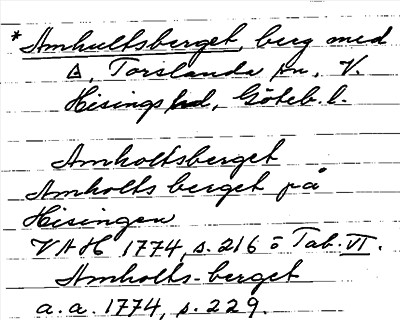 *Amhultsberget, berg med
△, Torslanda sn, V.
Hisings hd, Göteb. l.
Amholtsberget
Amholts berget på
Hisingen
VAH 1774, s. 216 o Tab. VI.
Amholts-berget
a. a. 1774, s. 229.